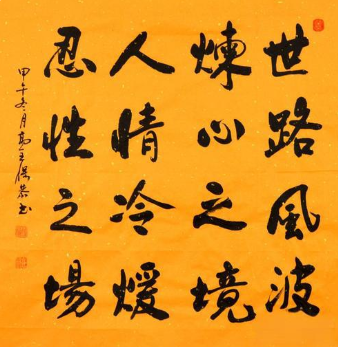 世路風波
煉心之境
人情冷煖
忍性之場
甲午冬月
保恭书